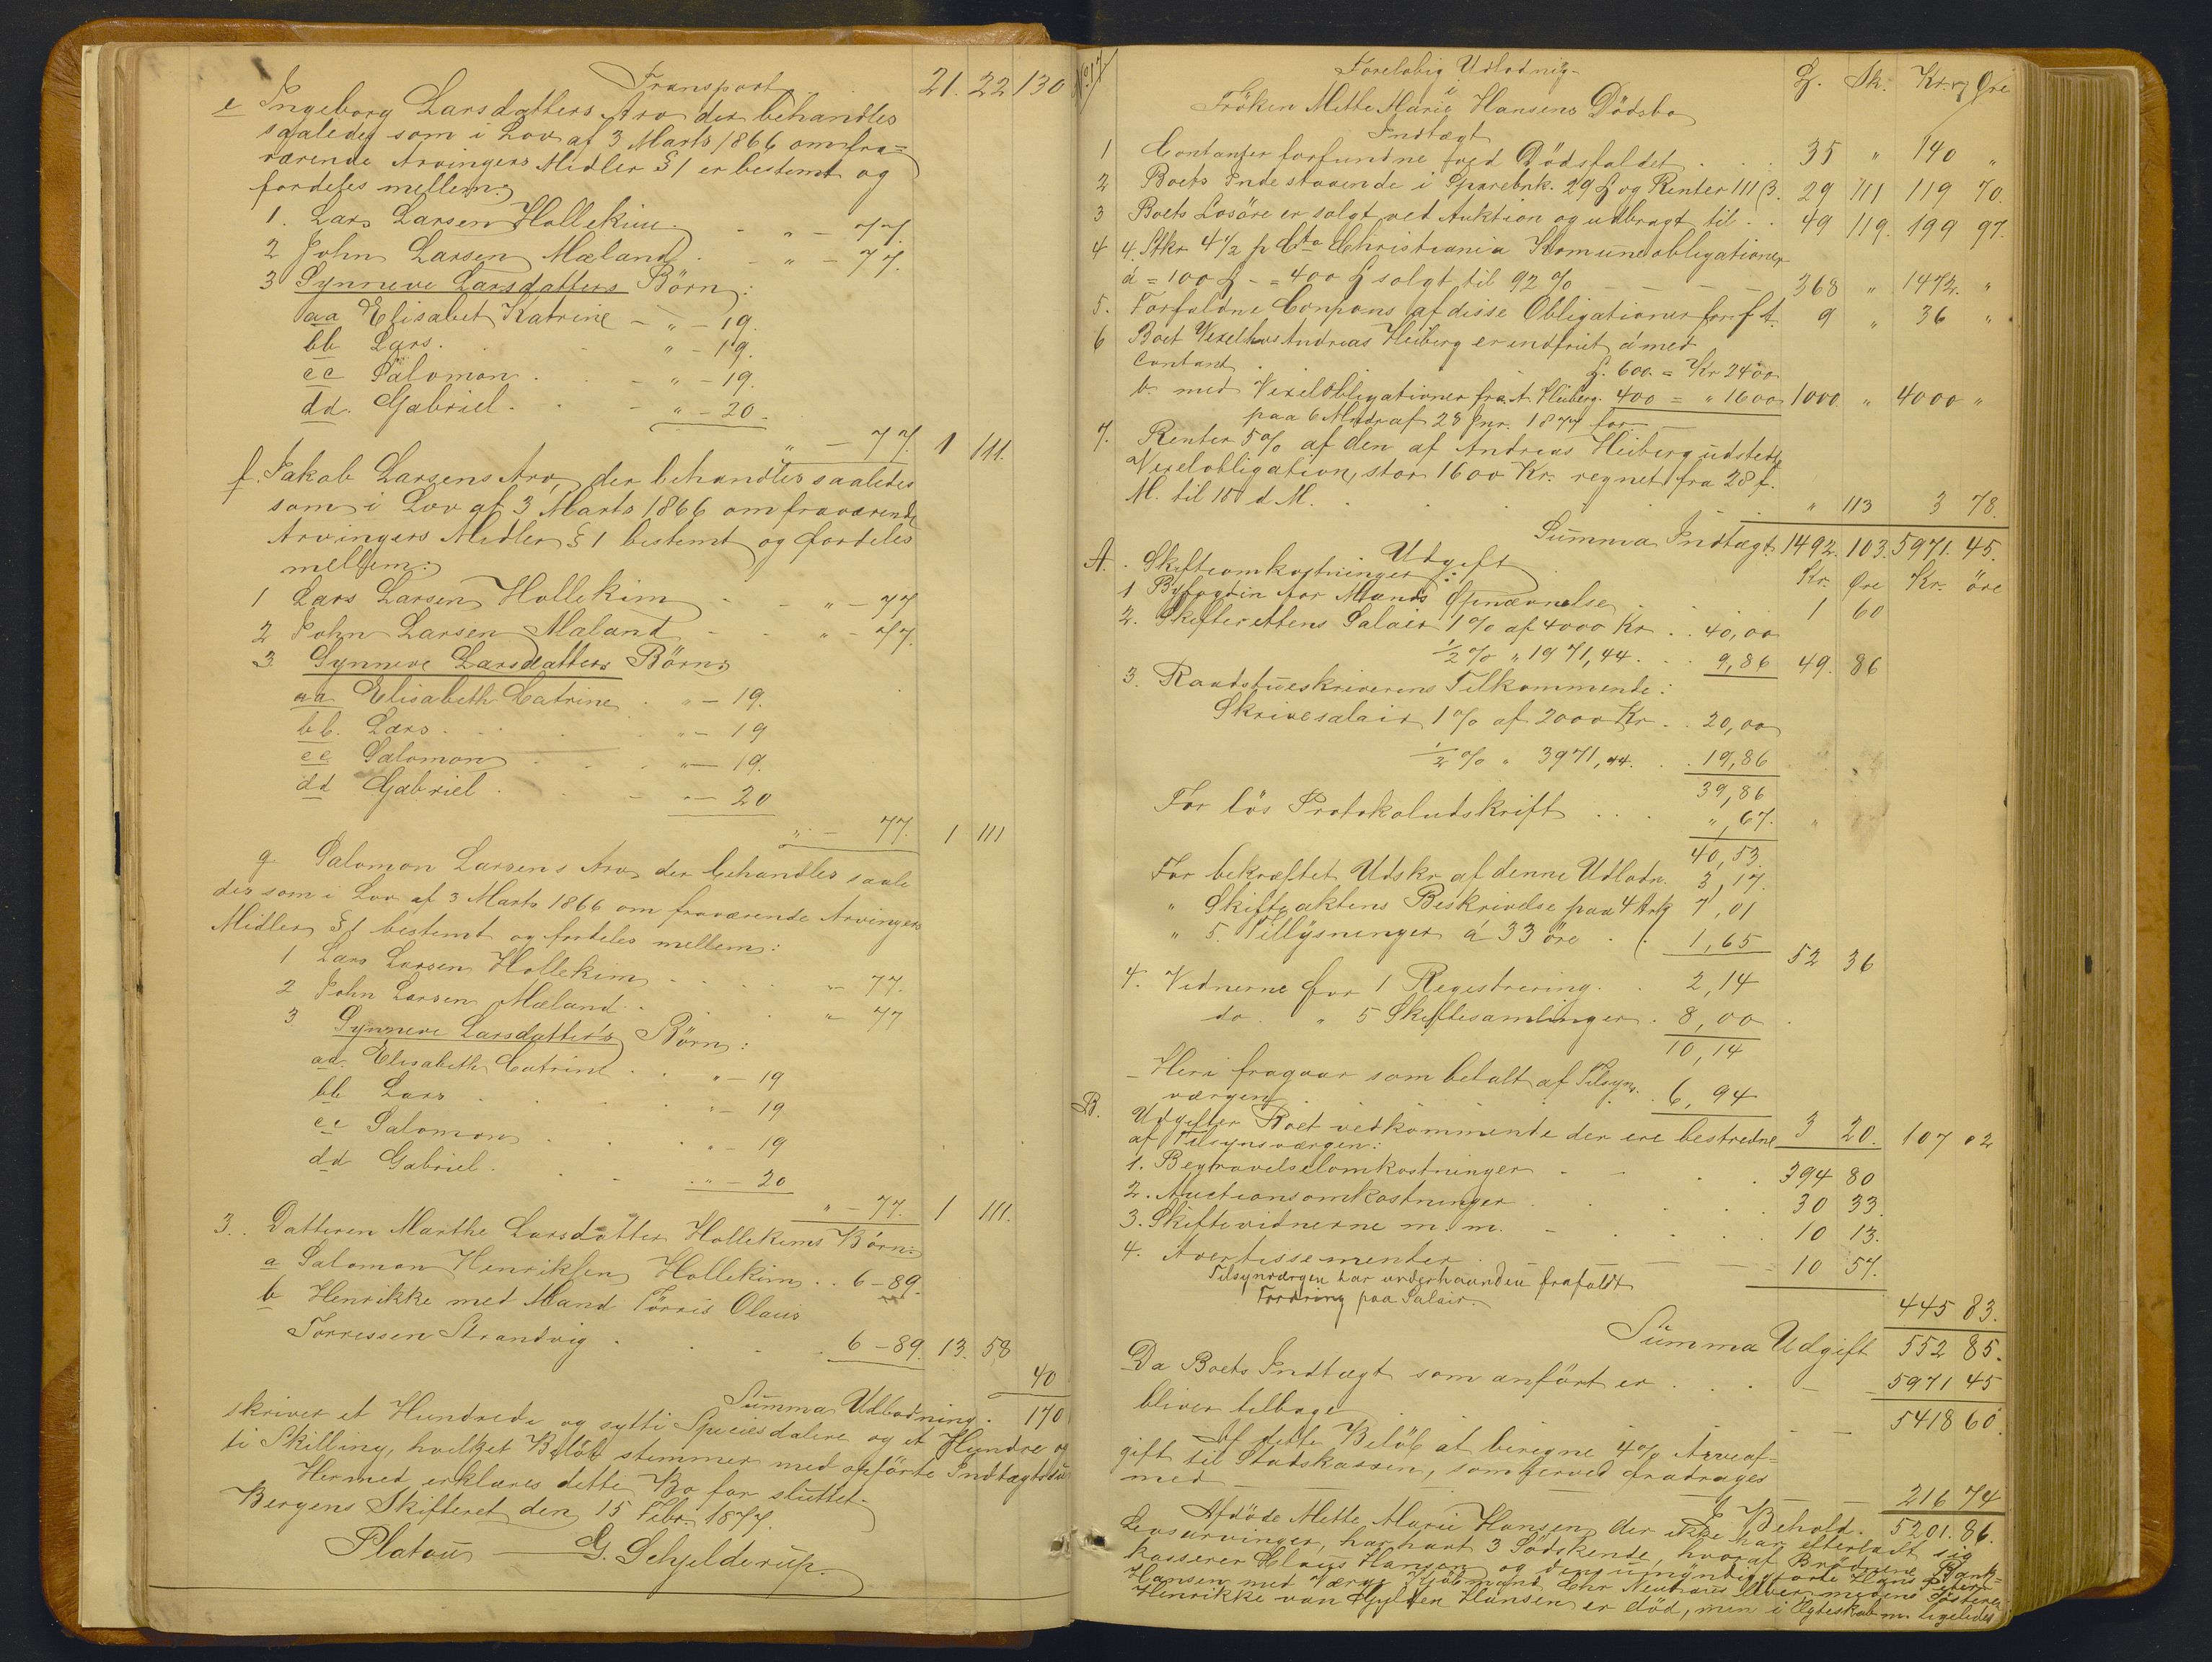 Transport 21. 22 130
e Ingeborg Larsdatters Arv der behandles
saaledes som i Lov af 3 Marts 1866 om fra=
værende Arvingers Midler §1 er bestemt og
fordeles mellem:
1. Lars Larsen Hollekim - " - 77.
2 John Larsen Mæland - " - 77.
3 Synneve Larsdatters Börn:
aa Elisabet Katrine - " - 19.
bb Lars. " - 19.
cc Salomon . - " - 19.
dd. Gabriel. - " - 20.
" - 77. 1 111.
f. Jakob Larsens Arv, der behandles saaledes
som i Lov af 3 Marts 1866 om fraværende
Arvingers Midler §1 bestemt og fordeles
mellem:
1 Lars Larsen Hollekim - - " - 77
2 John Larsen Mæland - - " - 77.
3 Synneve Larsdatters Börn
aa Elisabeth Catrine . " - 19.
bb. Lars . " - 19
cc Salomon . " - 19.
dd Gabriel . " - 20
" - 77. 1 111
g. Salomon Larsens Arv der behandles saale
des som i Lov af 3 Marts 1866 om fraværende Arvingers
Midler §1 bestemt og fordeles mellem:
1 Lars Larsen Hollekim - - " - 77.
2 John Larsen Mæland . . " - 77
3 Synneve Larsdatter's Börn:
aa. Elisabeth Catrine . . " - 19
bb Lars . . " - 19
cc Salomon . . " - 19
dd Gabriel . . " - 20
" - 77. 1 111.
3. Datteren Marthe Larsdatter Hollekims Börn:
a Salomon Henriksen Hollekim . . 6 - 89.
b Henrikke med Mand Törris Olaus
Torressen Strandvig . . 6 - 89. 13. 58
40
Summa Udlodning . 170
skriver et Hundrede og sytti Speciesdalere og et Hundre og
ti Skilling, hvilket Belöb stemmer med anförte Indtægtssum
Hermed erklæres dette Bo for sluttet.
Bergens Skifteret den 15 Febr. 1877.
Platou G. Schjelderup.
No 17 Foreløbig Udlodnig
i
Fröken Mette Marie Hansens Dödsbo
Indtægt
Sp. Sk. Kr. og Øre
1 Contanter forfundne ved Dödsfaldet . . . 35 " 140 "
2 Boets Indestaaende i Sparebnk. 29 Sp og Renter 111 ß. 29 111 119 70.
3 Boets Losöre er solgt ved Auktion og udbragt til . . 49 119. 199 97.
4 4. Stkr 4½ p Cto Christiania Komuneobligationer
á = 100 Sp - = 400 Sp solgt til 92 % 368 " 1472. "
5. Forfaldne Coupons af disse Obligationer for f. A. 9 " 36 "
6 Boet Vexel hos Andreas Heiberg er indfriet á med
Contant Sp. 600. = Kr 2400
b. med Vexelobligationer fra A. Heiberg. 400 = " 1600 1000. " 4000 "
paa 6 Mndr af 28 Jnr. 1877 for
7. Renter 5% af den af Andreas Heiberg udstedt
Vexelobligation, stor 1600 Kr. regnet fra 28 f.
M. til 15 d. M. " 113 3 78.
Summa Indtægt 1492. 103. 5971. 45.
Udgift Kr. Øre Kr. öre
A. Skifteomkostninger:
1 Byfogdin for Mands Opnævnelse . 1 60
2. Skifterettens Salair 1% af 4000 Kr . . 40,00
½ % " 1971,44 . . . 9,86 49. 86
3. Raadstueskriverens Tilkommende:
Skrivesalair 1% af 2000 Kr . . 20,00
½ % " 3971,44. . . 19,86
39,86
For lös Protokoludskrift . . . " ,67.
40,53.
For bekræftet Udskr. af denne Udlodn. 3,17.
" Skifteaktens Beskrivelse paa 4 Ark 7,01
" 5. Tillysninger á 33 öre . . 1,65 52 36
4. Vidnerne for 1 Registrering . . 2,14
do. " 5 Skiftesamlinger . 8,00
10,14
Heri fragaar som betalt af Tilsyns-
værgen . . 6,94
3 20. 107 02
B. Udgifter Boet vedkommende der ere bestredne
af Tilsynsværgen:
1. Begravelselomkostninger . 394 80
2. Auctionsomkostninger . 30 33.
3. Skiftevidnerne m. m. . 10 13.
4. Avertissementer . 10 57.
Tilsynværgen har underhaanden frafaldt
Fordring paa Salair. 445 83.
Summa Udgift 552 85.
Da Boets Indtægt som anfört er . . . 5971 45
bliver tilbage 5418 60.
Af dette Belöb at beregne 4% Arveaf=
gift til Statskassen, som herved fradrages
med 216 74
I Behold. 5201. 86.
Afdöde Mette Marie Hansen, der ikke har efterladt sig
Livsarvinger, har havt 3 Södskende, hvoraf Brödrene Bank=
kasserer Claus Hansen og den umyndiggjorte Hans Peter
Hansen med Værge Kjöbmand Chr Neuhaus lever medens Söstere
Henrikke van der Hansen er död, men i Ægteskab m. ligeledes